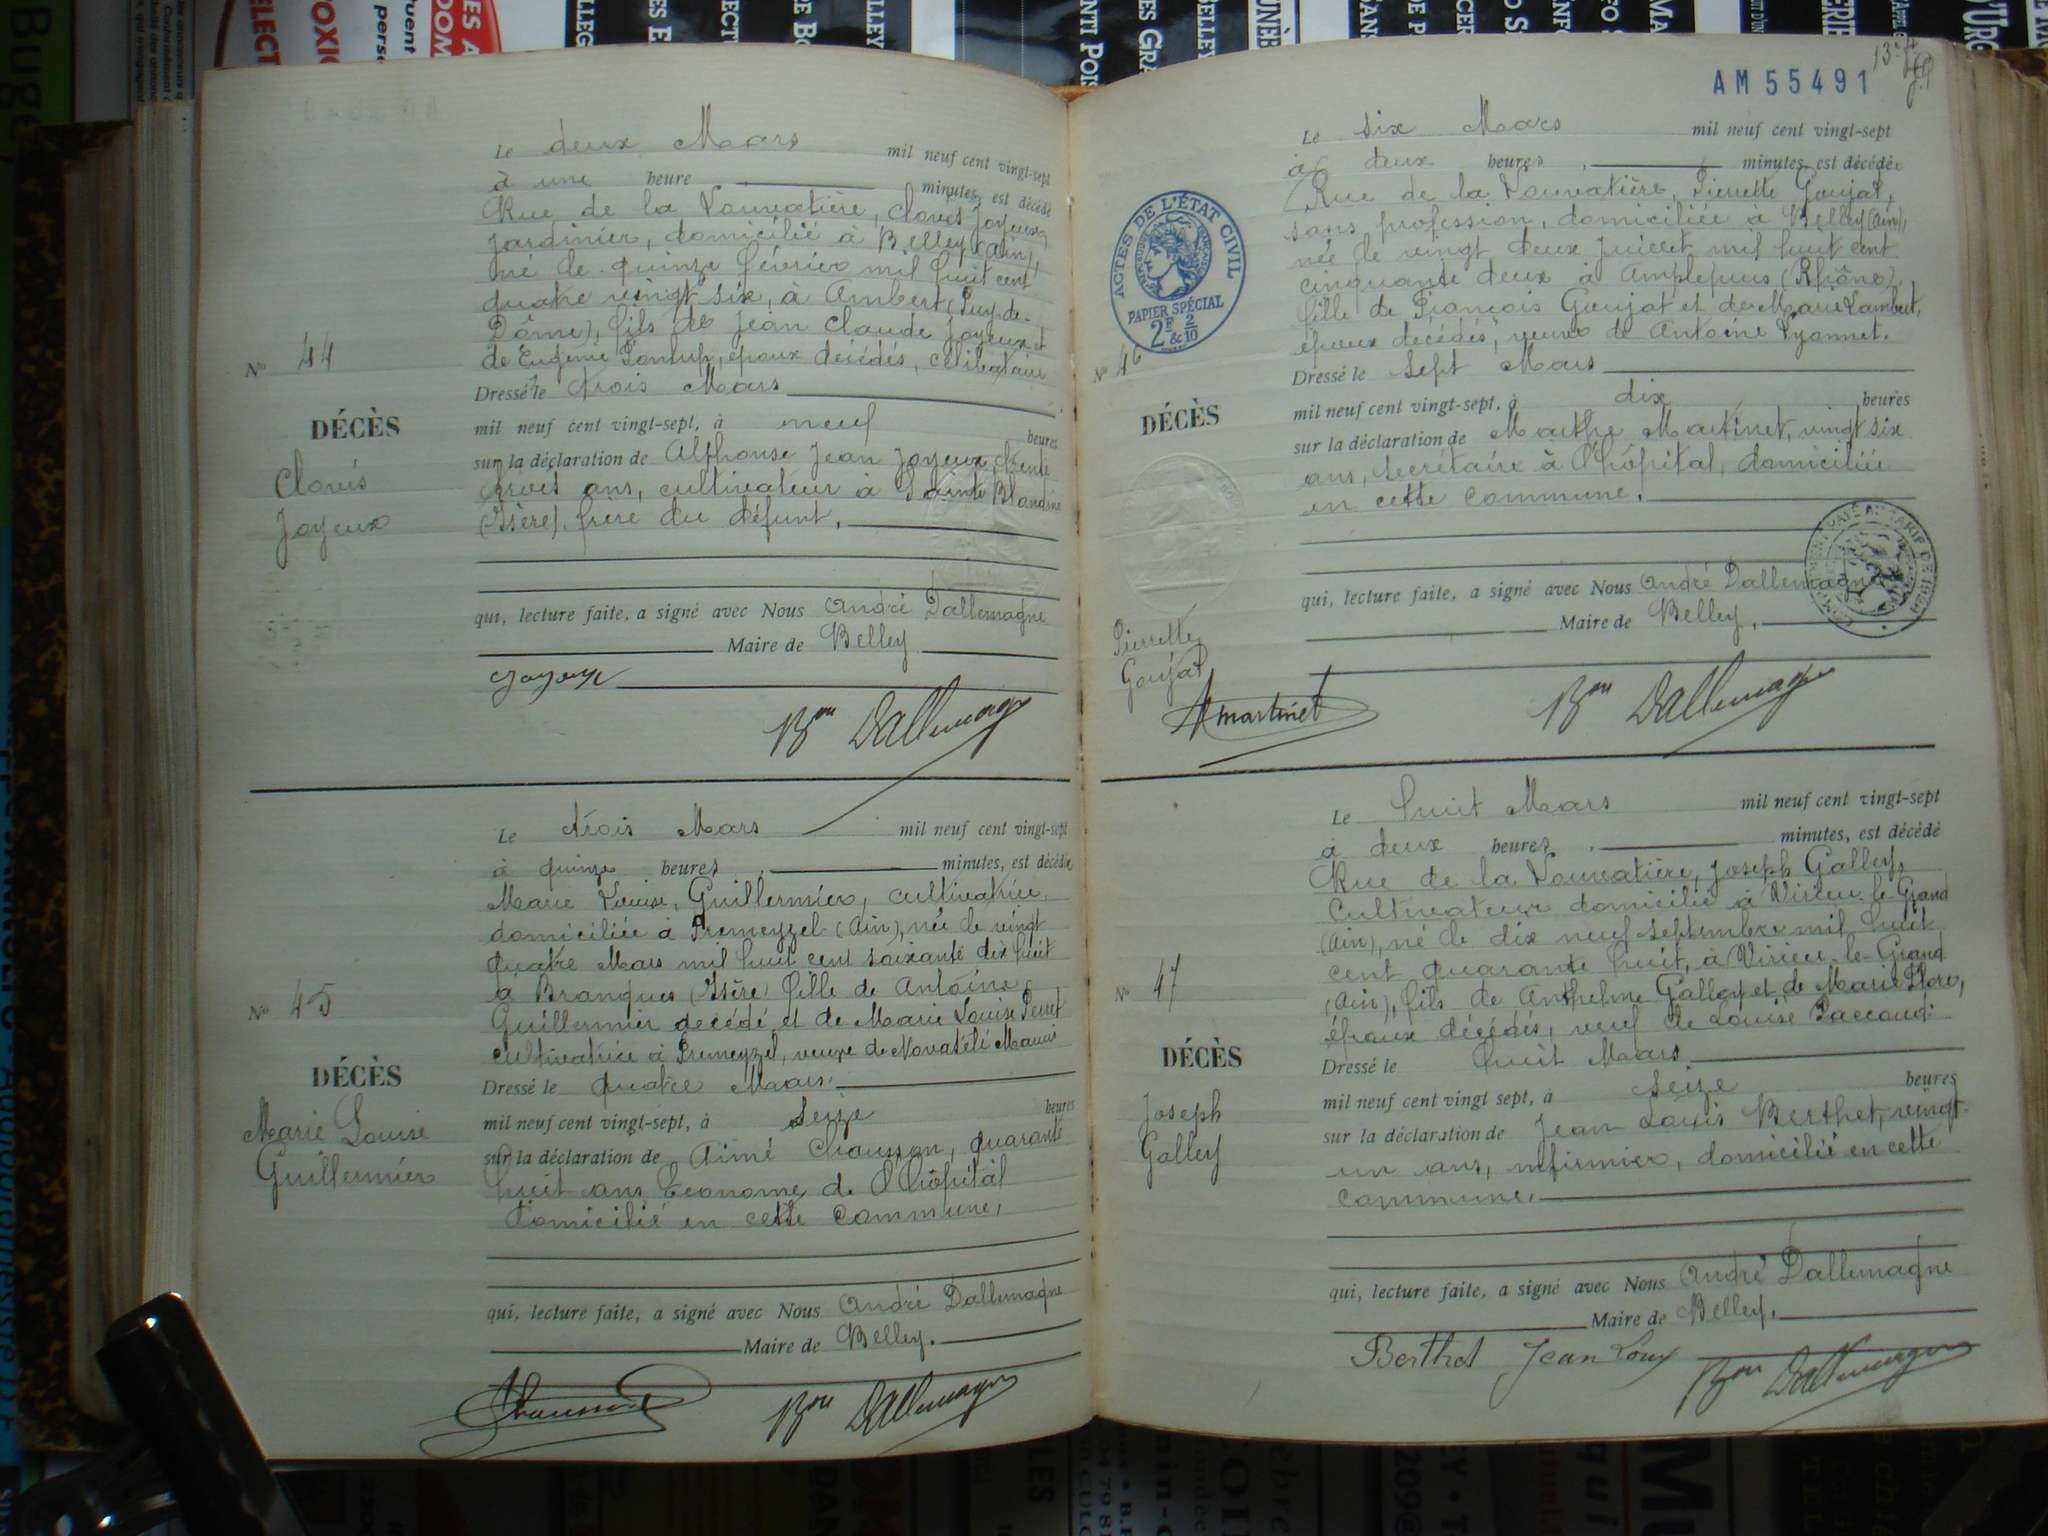 Le deux Mars mil neuf cent vingt-sept
à une heure minutes, est décédé
Rue de la Louvatière, Clovis Joyeux,
jardinier, domicilié à Belley (Ain),
né le quinze février mil huit cent
quatre vingt six, à Ambert (Puy-de-
Dôme), fils de Jean Claude Joyeux et
de Eugénie, époux décédés, célibataire
Nº 44
Dressé le trois Mars
DÉCÈS
Clovis
Joyeux
mil neuf cent vingt-sept, à neuf heures
sur la déclaration de Alphonse Jean Joyeux, trente
trois ans, cultivateur à Sainte Blandine
(Isère) frère du défunt,
qui, lecture faite, a signé avec Nous André Dallemagne
Maire de Belley
Joyeux
Bon Dallemagne
Le trois Mars mil neuf cent vingt-sept
à quinze heures minutes, est décédée
Marie Louise, Guillermier, cultivatrice,
domiciliée à Premeyzel (Ain), née le vingt
quatre Mars mil huit cent soixante dix huit
à Brangues (Isère) fille de Antoine
Guillermier décédé et de Marie Louise Perret
cultivatrice à Premeyzel, veuve de
Nº 45
Dressé le quatre Mars,
DÉCÈS
Marie Louise
Guillermier
mil neuf cent vingt-sept, à seize heures
sur la déclaration de Aimé Chausson, quarante
huit ans, Econome de l'hôpital
domicilié en cette commune,
qui, lecture faite, a signé avec Nous André Dallemagne
Maire de Belley.
Chausson
Bon Dallemagne
AM 55491
Le six Mars mil neuf cent vingt-sept
à deux heures, minutes, est décédée
Rue de la Louvatière, Pierrette Goujat,
sans profession, domiciliée à Belley (Ain),
née le vingt deux juillet mil huit cent
cinquante deux à Amplepuis (Rhône),
fille de François Goujat et de Marie Lambert,
époux décédés, veuve de Antoine Lyonnet.
ACTES DE L'ÉTAT CIVIL
PAPIER SPÉCIAL
2F & 2/10
Nº 46
Dressé le sept Mars
DÉCÈS
Pierrette
Goujat
mil neuf cent vingt-sept, à dix heures
sur la déclaration de Marthe Martinet, vingt six
ans, secrétaire à l'hôpital, domiciliée
en cette commune.
qui, lecture faite, a signé avec Nous André Dallemagne
Maire de Belley,
Martinet
Bon Dallemagne
Le huit Mars mil neuf cent vingt-sept
à deux heures, minutes, est décédé
Rue de la Louvatière, Joseph Galley,
cultivateur domicilié à Virieu-le-Grand
(Ain), né le dix neuf septembre mil huit
cent quarante huit, à Virieu-le-Grand
(Ain), fils de Anthelme Galley et de Marie
époux décédés, veuf de Louise Paccoud.
Nº 47
Dressé le huit Mars
DÉCÈS
Joseph
Galley
mil neuf cent vingt sept, à seize heures
sur la déclaration de Jean Louis Berthet, vingt
un ans, infirmier, domicilié en cette
commune,
qui, lecture faite, a signé avec Nous André Dallemagne
Maire de Belley.
Berthet Jean Louis
Bon Dallemagne